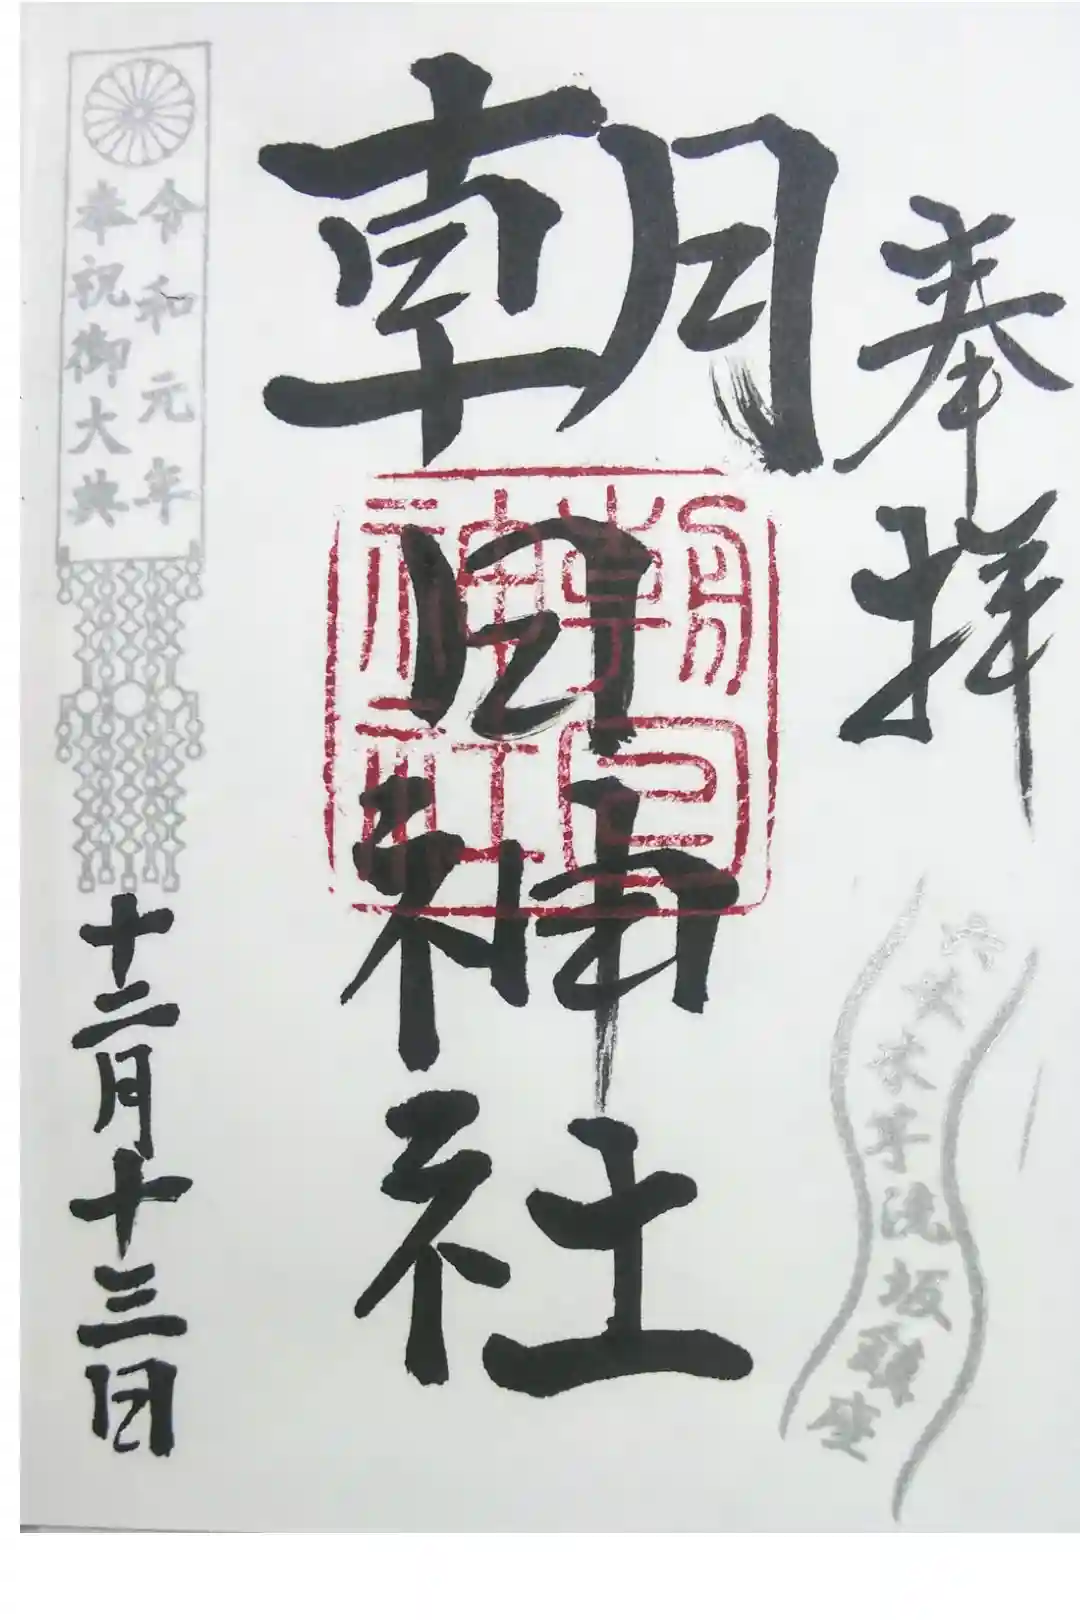 奉拝
六本木芋洗坂鎮座
朝日神社
朝日
神社
令和元年
奉祝御大典
十二月十三日